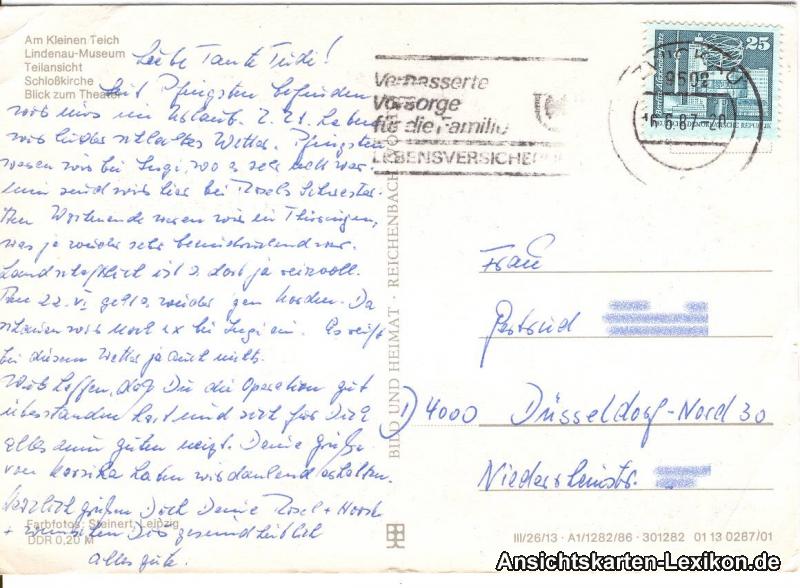 Am Kleinen Teich
Lindenau-Museum
Teilansicht
Schloßkirche
Blick zum Theater
Liebe Tante Trudi!
Seit Pfingsten befinden
wir uns im Urlaub. Z. Zt. haben
wir leider schlechtes Wetter. Pfingsten
waren wir bei Ingi, wo es sehr nett war.
nun sind wir hier bei Rosels Schwester.
Am Wochenende waren wir in Thüringen,
was ja wieder sehr beeindruckend war.
Landschaftlich ist es dort ja reizvoll.
Am 22. VI. geht es wieder gen Norden. Da
schauen wir noch 1x bei Ingi ein. Es reift
bei diesem Wetter ja auch nichts.
Wir hoffen, daß Du die Operation gut
überstanden hast und sich für Dich
alles zum guten neigt. Deine Grüße
von Korsika haben wir dankend erhalten.
Herzlich grüßen Dich Deine Rosel + Horst
+ wünschen Dir gesundheitlich
alles gute.
Farbfotos: Steinert, Leipzig
DDR 0,20 M
BILD UND HEIMAT · REICHENBACH
Verbesserte
Vorsorge
für die Familie
LEBENSVERSICHE
9502
16.6.87-20
25
DEUTSCHE DEMOKRATISCHE REPUBLIK
Frau
Gertrud
D 4000 Düsseldorf-Nord 30
Niederrheinstr.
III/26/13 · A1/1282/86 · 301282 01 13 0287/01
Ansichtskarten-Lexikon.de